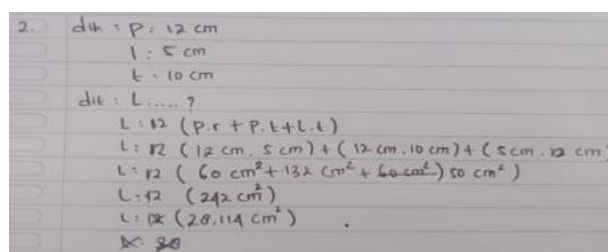 2. dik : p : 12 cm
l : 5 cm
t : 10 cm
dit : L ..... ?
L : 12 (p.r + p.t + L.t)
L : 12 (12 cm . 5 cm) + (12 cm . 10 cm) + (5 cm . 12 cm
L : 12 ( 60 cm² + 132 cm² + 60 cm² ) 50 cm² )
L : 12 (242 cm²)
L : (28.114 cm²)